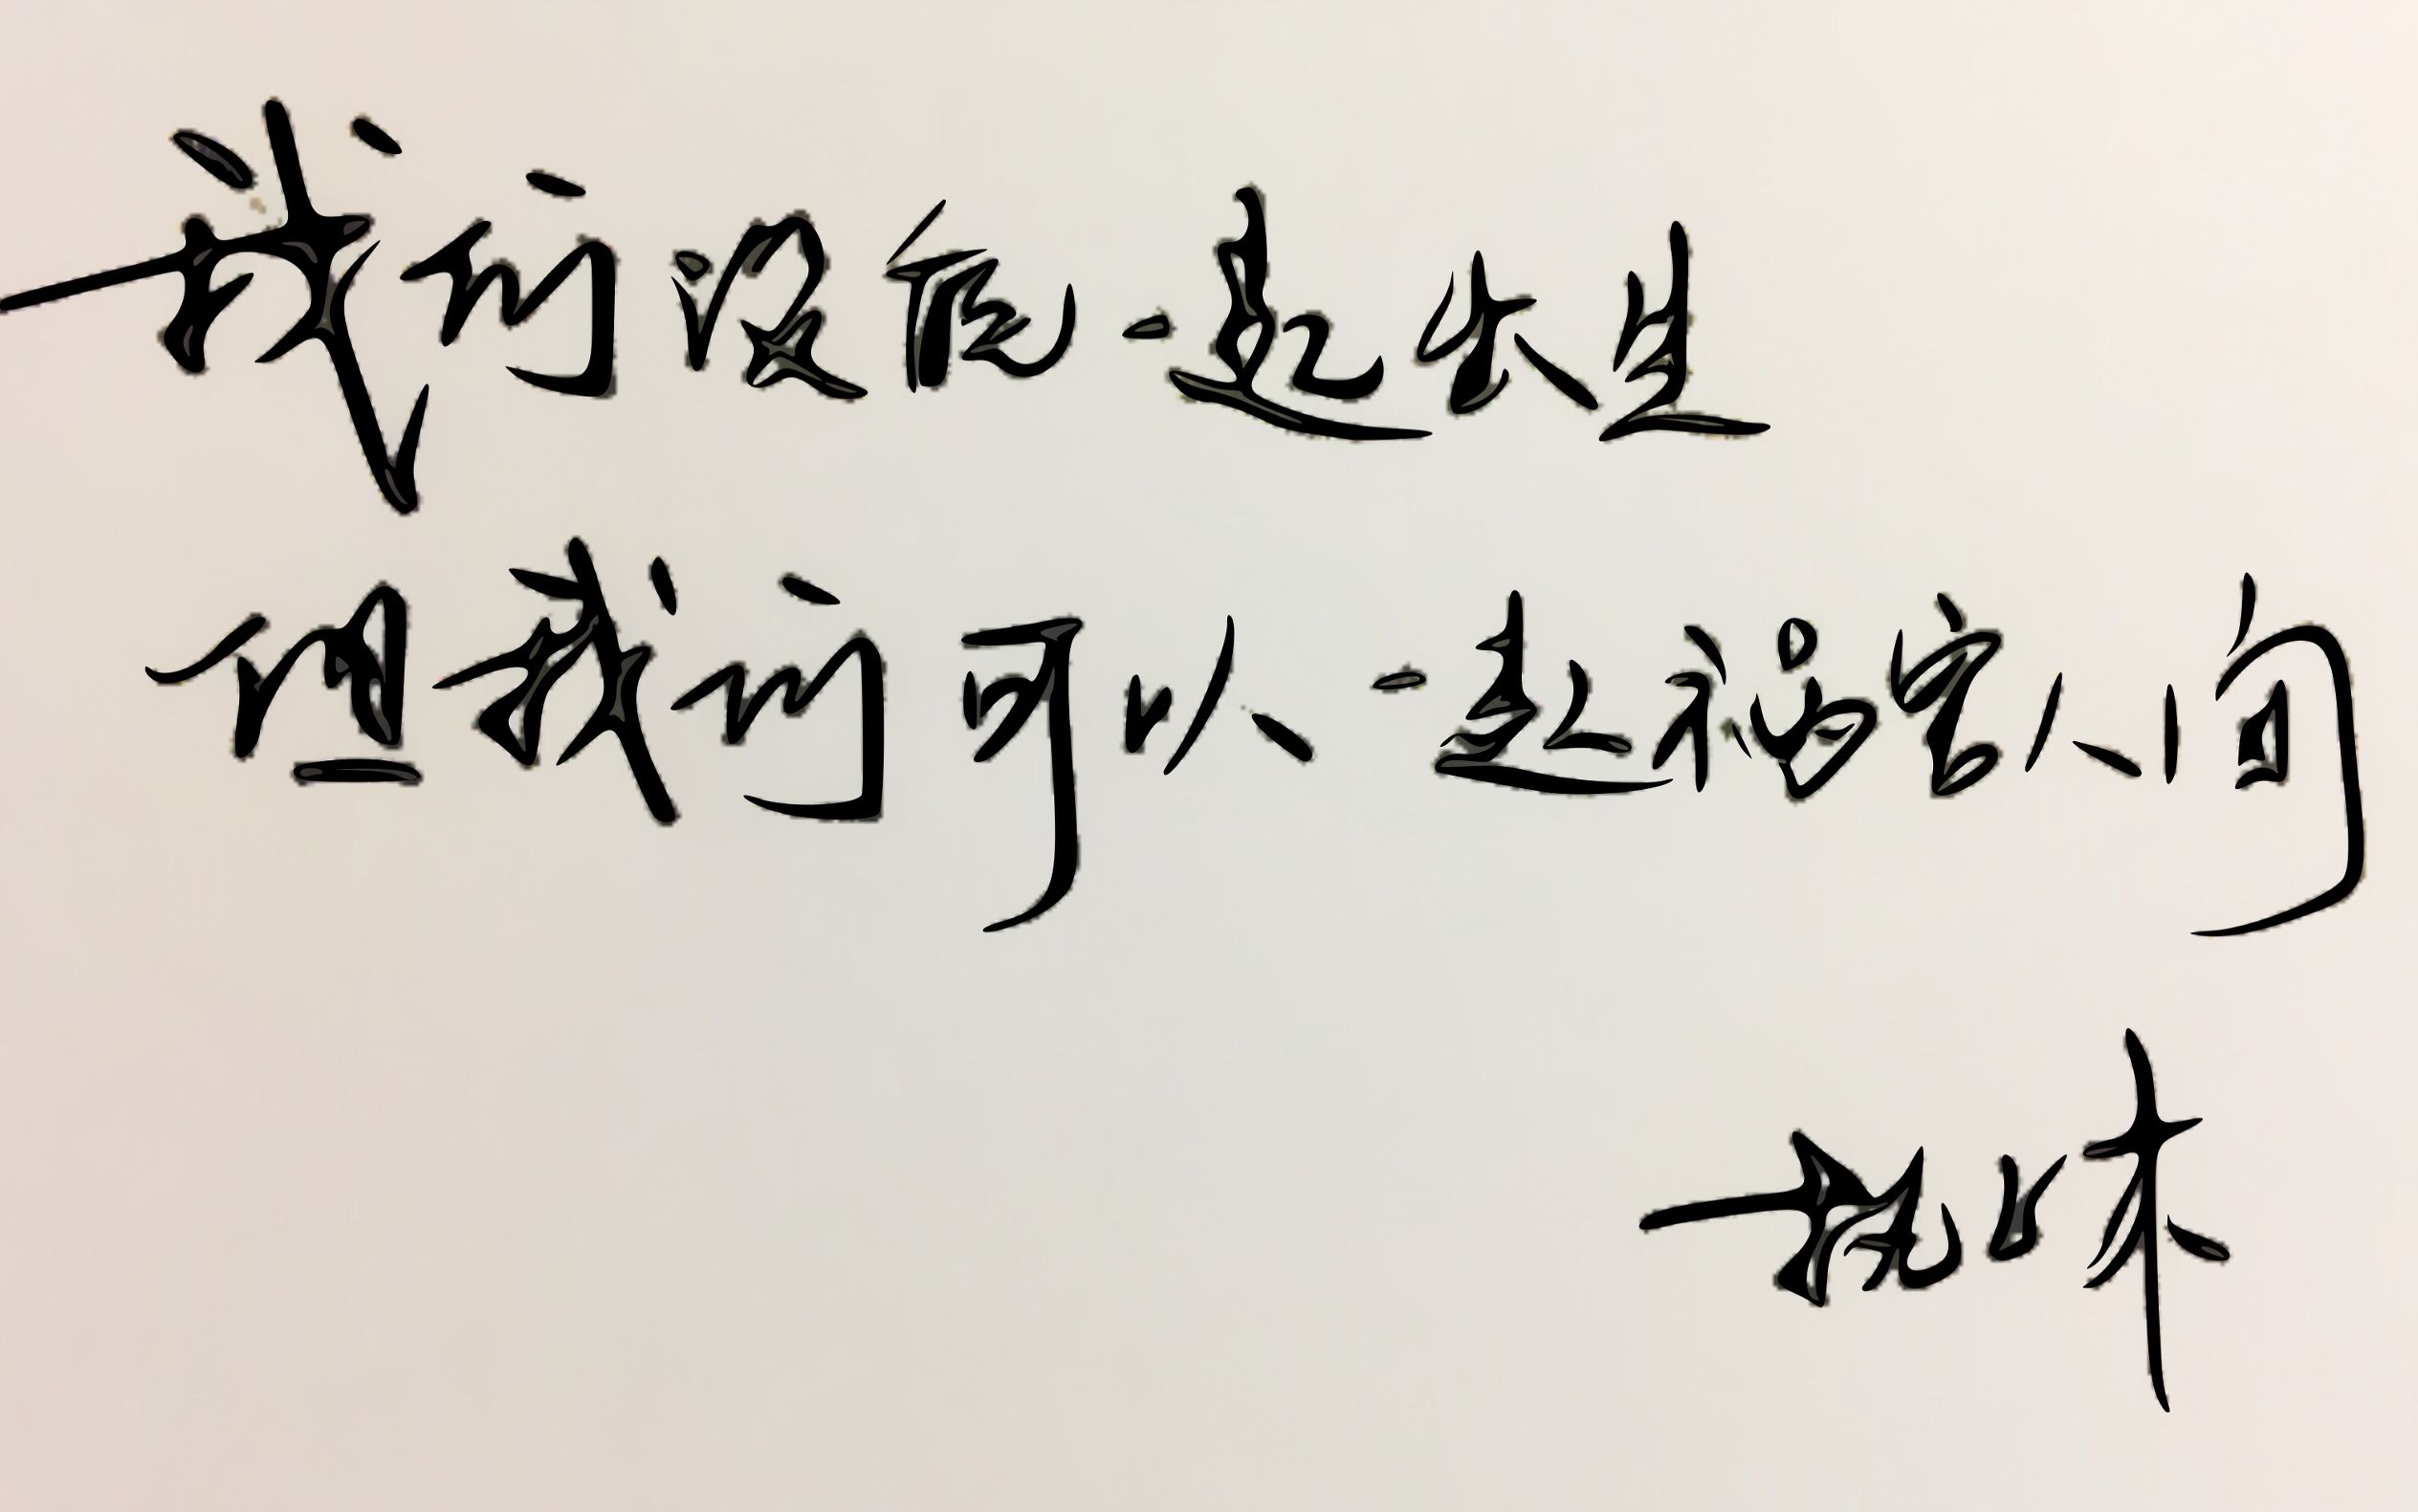 我们没能一起出生
但我们可以一起祸害人间